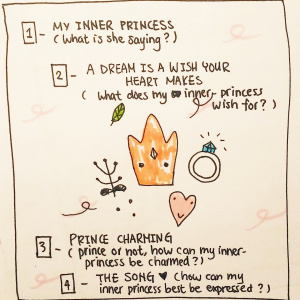 1 - MY INNER PRINCESS
(What is she saying?)
2 - A DREAM IS A WISH YOUR
HEART MAKES
( what does my inner-princess
wish for?)
3 - PRINCE CHARMING
( prince or not, how can my inner-
princess be charmed?)
4 - THE SONG ♥ (how can my
inner princess best be expressed?)